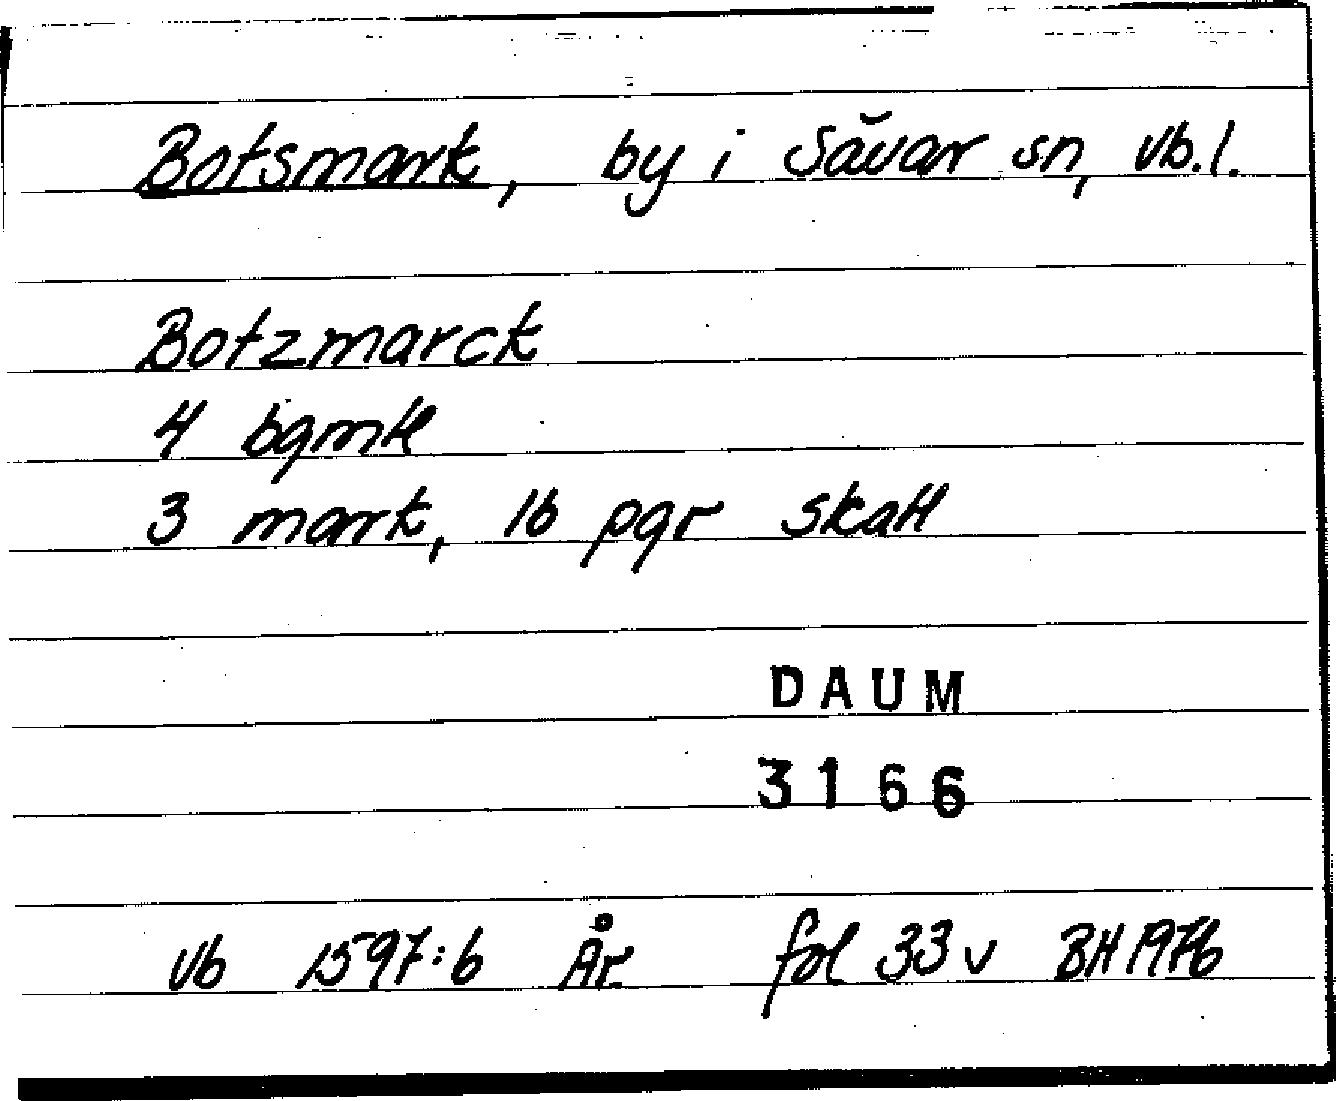 Botsmark, by i Sävar sn, Vb.l.
Botzmarck
4 bgmtl
3 mark, 16 pgr skatt
DAUM
3166
Vb 1597:6 År fol 33 v BH 1976